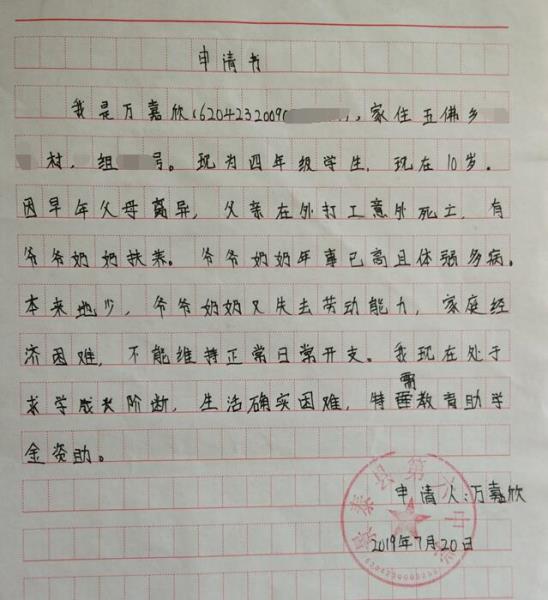 申请书
我是万嘉欣(6204232009),家住五佛乡
村,组号。现为四年级学生,现在10岁。
因早年父母离异,父亲在外打工意外死亡,有
爷爷奶奶扶养。爷爷奶奶年事已高且体弱多病。
本来地少,爷爷奶奶又失去劳动能力,家庭经
济困难,不能维持正常日常开支。我现在处于
求学成长阶断,生活确实困难,特需教育助学
金资助。
申请人:万嘉欣
2019年7月20日
景泰县第中学